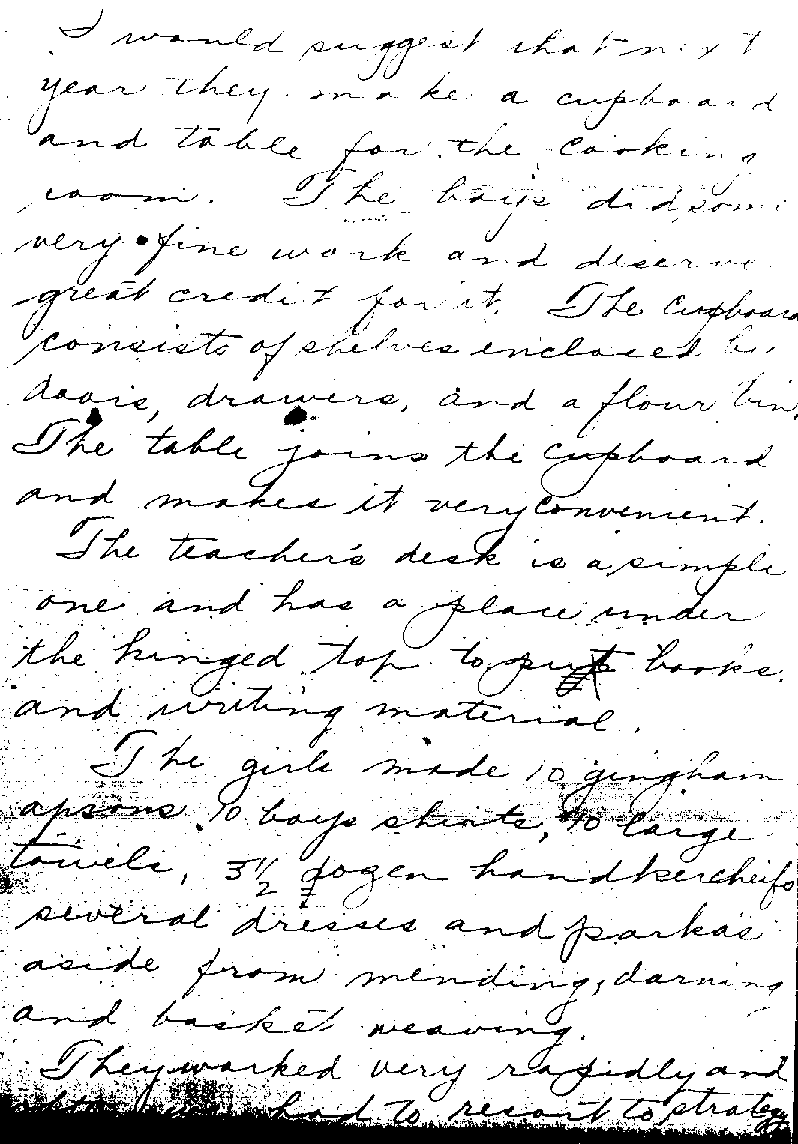 I would suggest that next
year they make a cupboard
and table for the cooking
room. The boys did some
very fine work and deserve
great credit for it. The cupboard
consists of shelves enclosed by
doors, drawers, and a flour bin.
The table joins the cupboard
and makes it very convenient.
The teacher's desk is a simple
one and has a place under
the hinged top to put books
and writing material.
The girls made 10 gingham
aprons 10 boys shirts, 40 large
towels, 3 1/2 dozen handkercheifs
several dresses and parkas
aside from mending, darning
and basket weaving.
They worked very rapidly and
had to resort to strategy